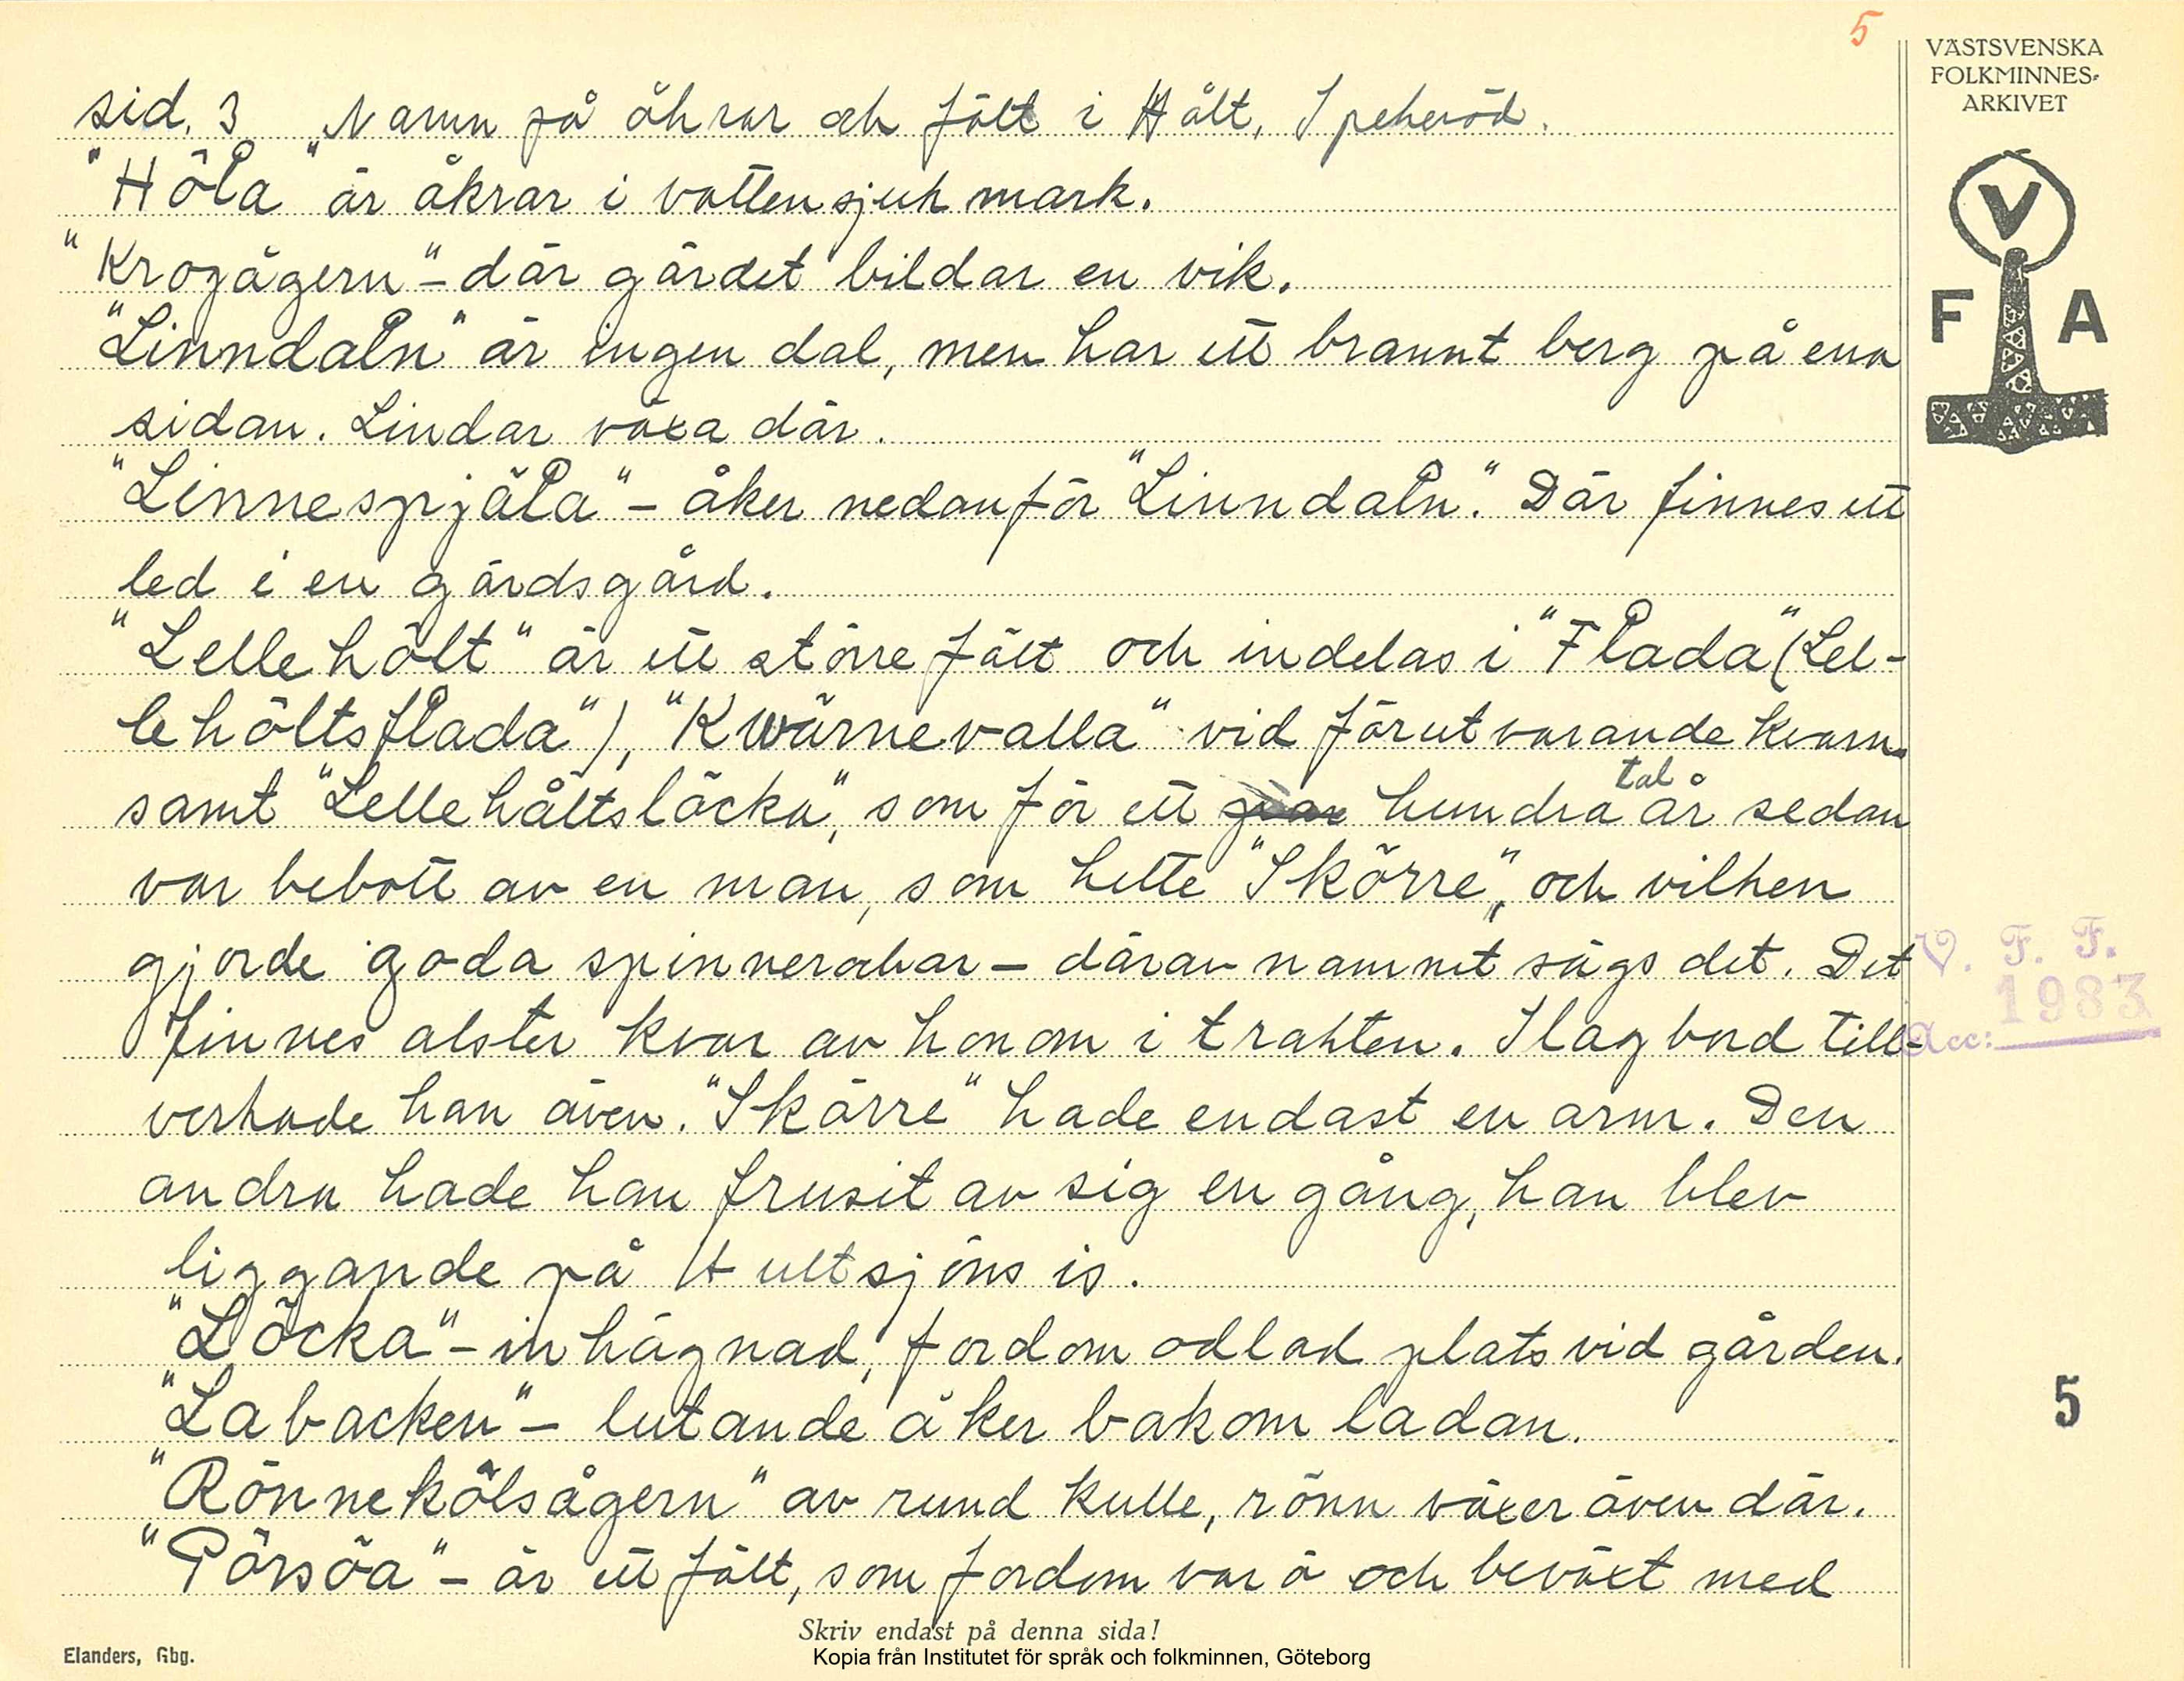 5
VÄSTSVENSKA
FOLKMINNES-
ARKIVET
V
F A
sid. 3 Namn på åkrar och fält i Hält, Spekeröd.
"Höla" är åkrar i vattensjuk mark.
"Krogågern" - där gärdet bildar en vik.
"Linndaln" är ingen dal, men har ett brannt berg på ena
sidan. Lindar växa där.
"Linnespjäla" - åker nedanför "Linndaln". Där finnes ett
led i en gärdsgård.
"Lellehôlt" är ett större fält och indelas i "Flada" (Lel-
lehôltsflada"), "Kwärnevalla" vid förutvarande kvarn
samt "Lellehåltslöcka", som för ett hundratal år sedan
var bebott av en man, som hette "Skörre", och vilken
gjorde goda spinnerockar - därav namnet sägs det. Det
finnes alster kvar av honom i trakten. Slagbord till-
verkade han även. "Skörre" hade endast en arm. Den
andra hade han frusit av sig en gång, han blev
liggande på Hultsjöns is.
"Löcka" - inhägnad, fordom odlad plats vid gården.
"Labacken" - lutande åker bakom ladan.
"Rönnekôlsågern" av rund kulle, rönn växer även där.
"Pörsöa" - är ett fält, som fordom var ö och beväxt med
V. F. F.
1983
Acc:
5
Skriv endast på denna sida!
Elanders, Gbg.
Kopia från Institutet för språk och folkminnen, Göteborg